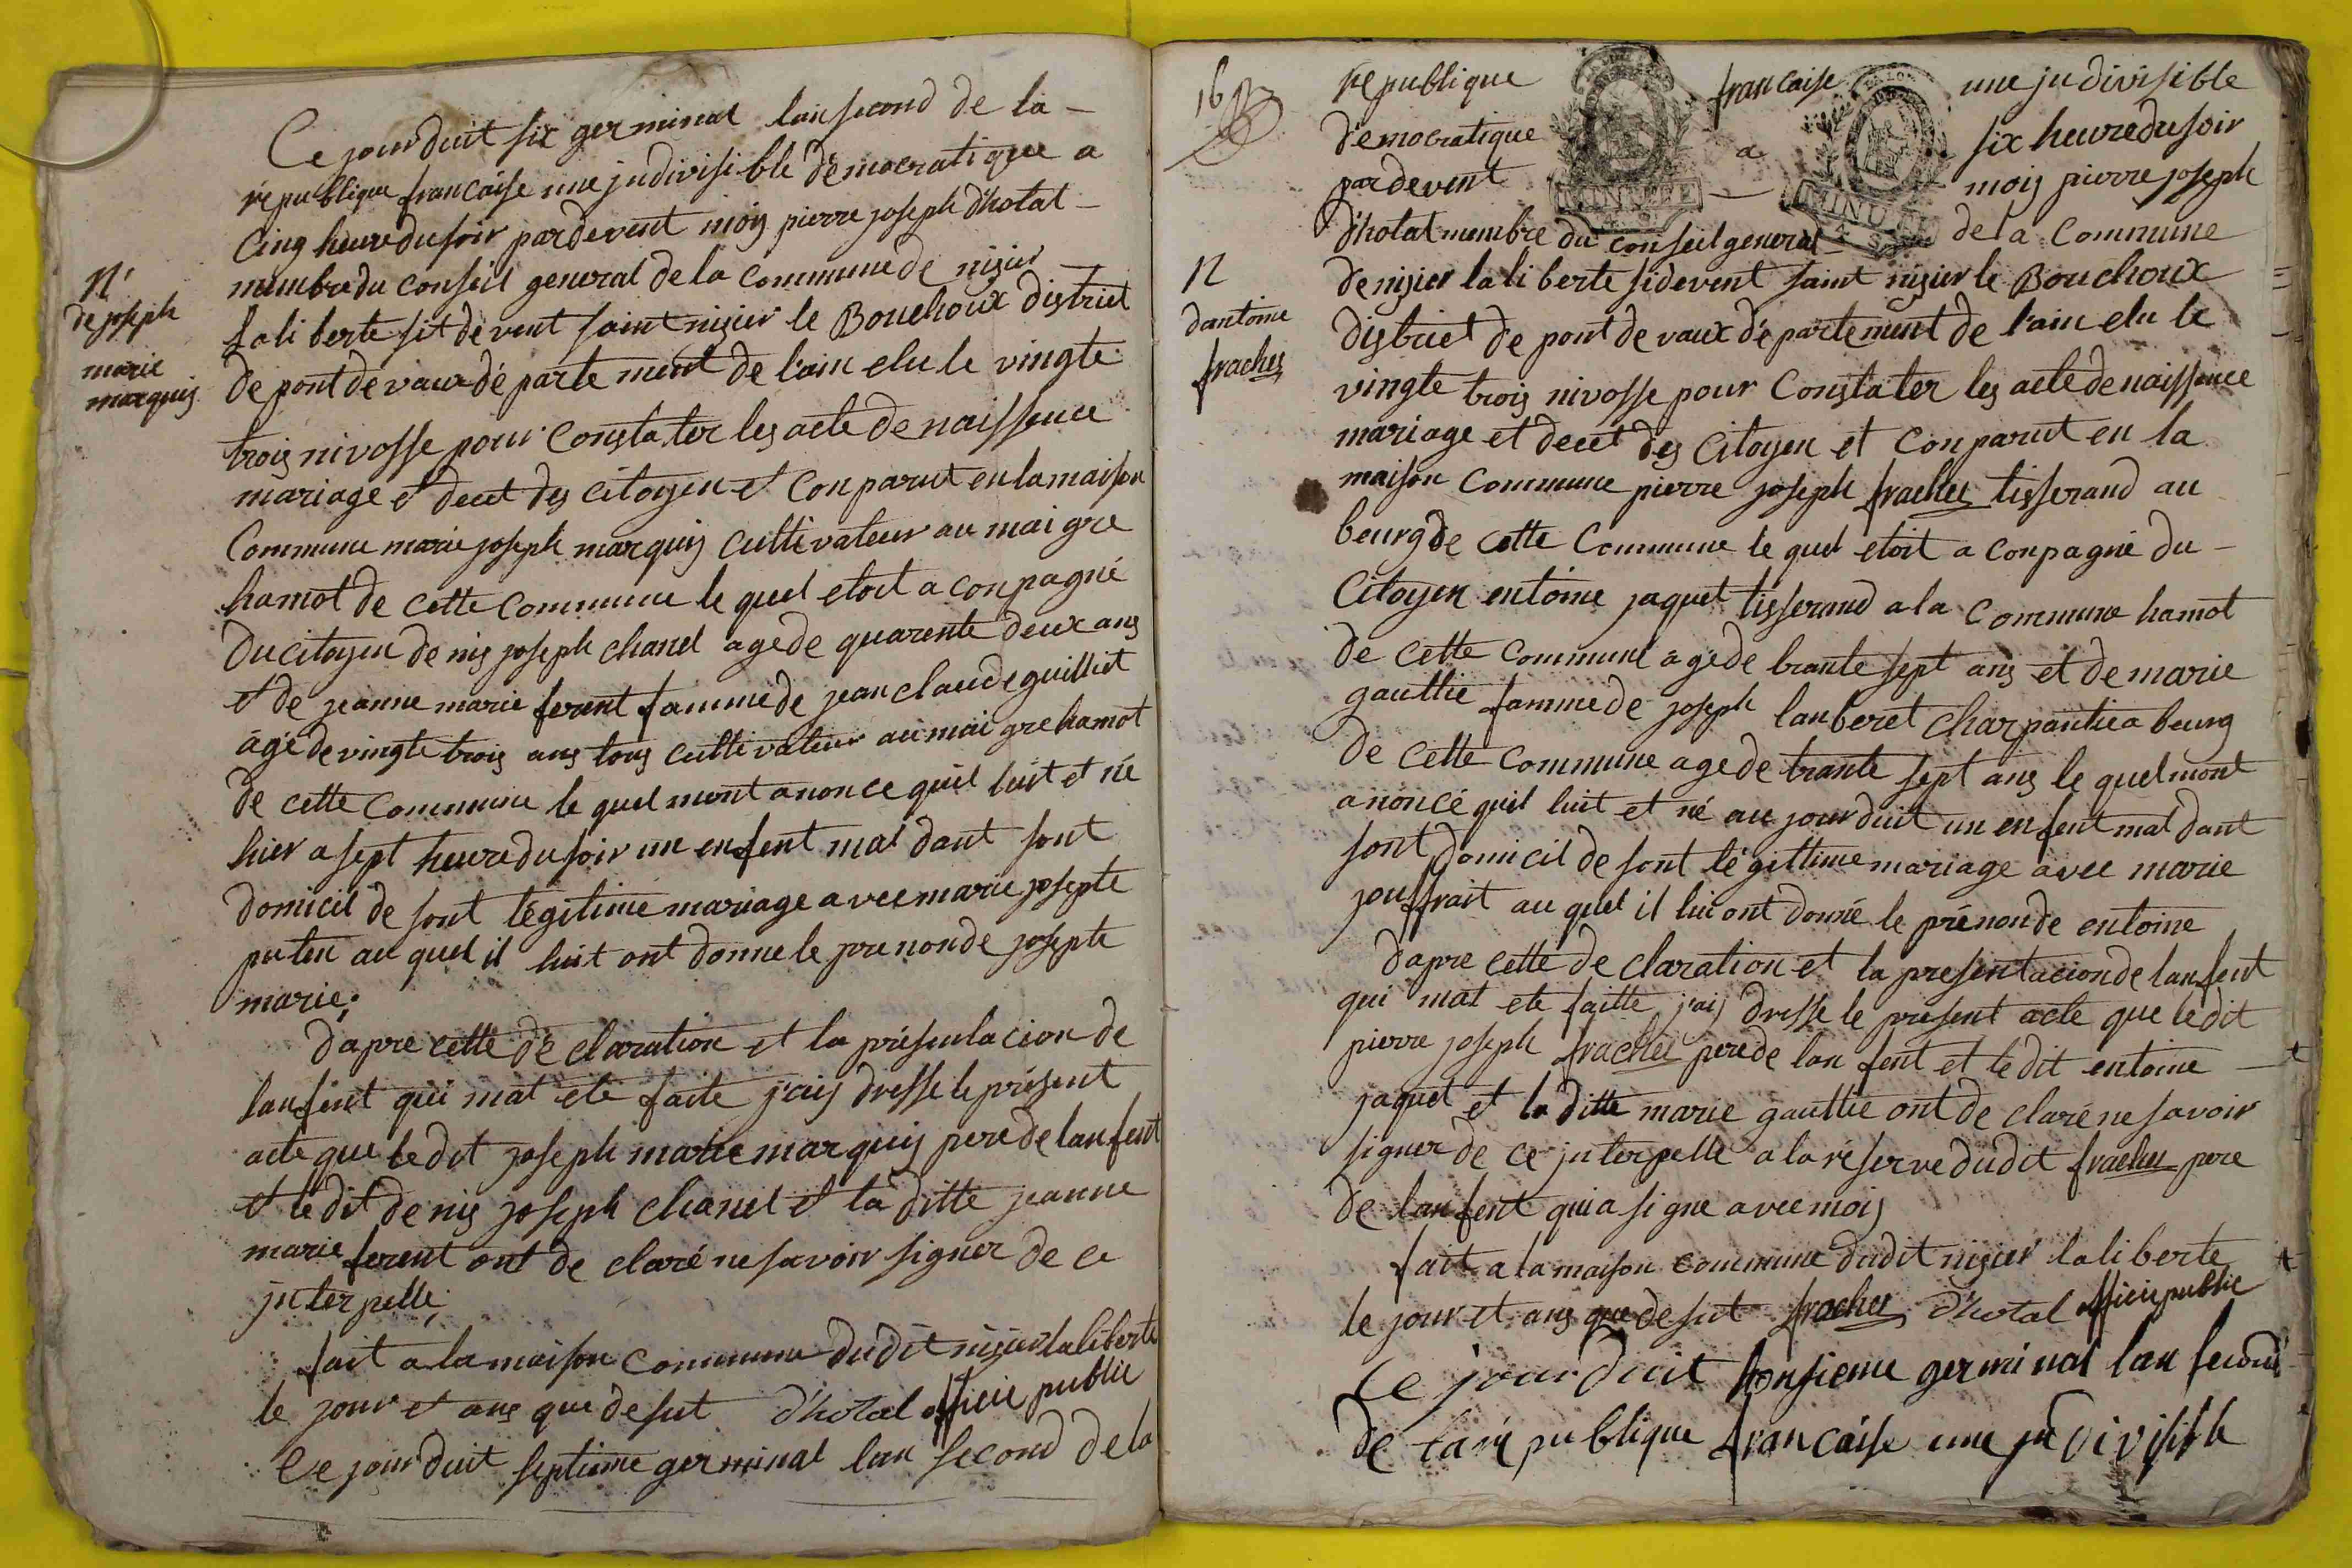 Ce jour duit six germinal lan second de la -
république francaise une judivisible démocratique a
cinq heure du soir pardevent moy pierre joseph d'hotal -
membre du conseil general de la commune de nisier
N'
de joseph
marie
marquis
laliberte sit devent saint nisier le Bouchoux district
de pont de vaux département de l'ain elu le vingte
trois nivosse pour constater les acte de naissence
mariage et decet des citoyen et conparut en la maison
Commune marie joseph marquis cultivateur au maigre
hamot de cette commune le quel etoit a conpagné
du citoyen denis joseph chanel age de quarente deux ans
et de jeanne marie ferent famme de jean claude guilliot
age de vingte trois ans tous cultivateur au maigre hamot
de cette commune le quel mont anonce quil luit et né
hier a sept heure du soir un enfent mal dant sont
domicil de sont légitime mariage avec marie josepte
puten au quel il luit ont donne le prenon de josepte
marie;
dapre cette déclaration et la présentacion de
lanfent qui mat ete faite j'ais dresse le présent
acte que ledit joseph marie marquis pere de lanfent
et ledit denis joseph chanel et la ditte jeanne
marie ferent ont de claré ne savoir signer de ce
juterpelle;
fait a la maison commune dudit nisier laliberte
le jour et ans que desut d'hotal officie public
Ce jour duit septieme germinal lan second de la
16
republique francaise une judivisible
démocratique a six heure du soir
pardevent - mois pierre joseph
MINUTE
MINUTE
d'hotal membre du conseil general de la commune
N
dantoine
fraches
denisier laliberte sidevent saint nisier le Bouchoux
district de pont de vaux département de l'ain elu le
vingte trois nivosse pour constater les acte de naissence
mariage et decet des citoyen et conparut en la
maison commune pierre joseph fraches tisserand au
beurg de cette commune le quel etoit a conpagné du -
citoyen entoine jaquet tisserand a la commune hamot
de cette commune agé de trante sept ans et de marie
gauttie famme de joseph lanberet charpantie a beurg
de cette commune age de trante sept ans le quel mont
anoncé quil luit et né au jour duit un enfent mal dant
sont domicil de sont légittime mariage avec marie
jouffrait au quel il lui ont donné le prénon de entoine
dapre cette de claration et la presentacion de lanfent
qui mat ete faitte j'ais dresse le present acte que ledit
pierre joseph fraches pere de lanfent et ledit entoine
jaquet et la ditte marie gauttie ont de claré ne savoir
signer de ce juterpelle a la réserve dudit fraches pere
de lanfent qui a signe avec mois
fait a la maison commune dudit nisier laliberte
le jour et ans que desut fraches d'hotal officie public
Ce jour duit honsieme germinal lan second
de la république francaise une judivisible